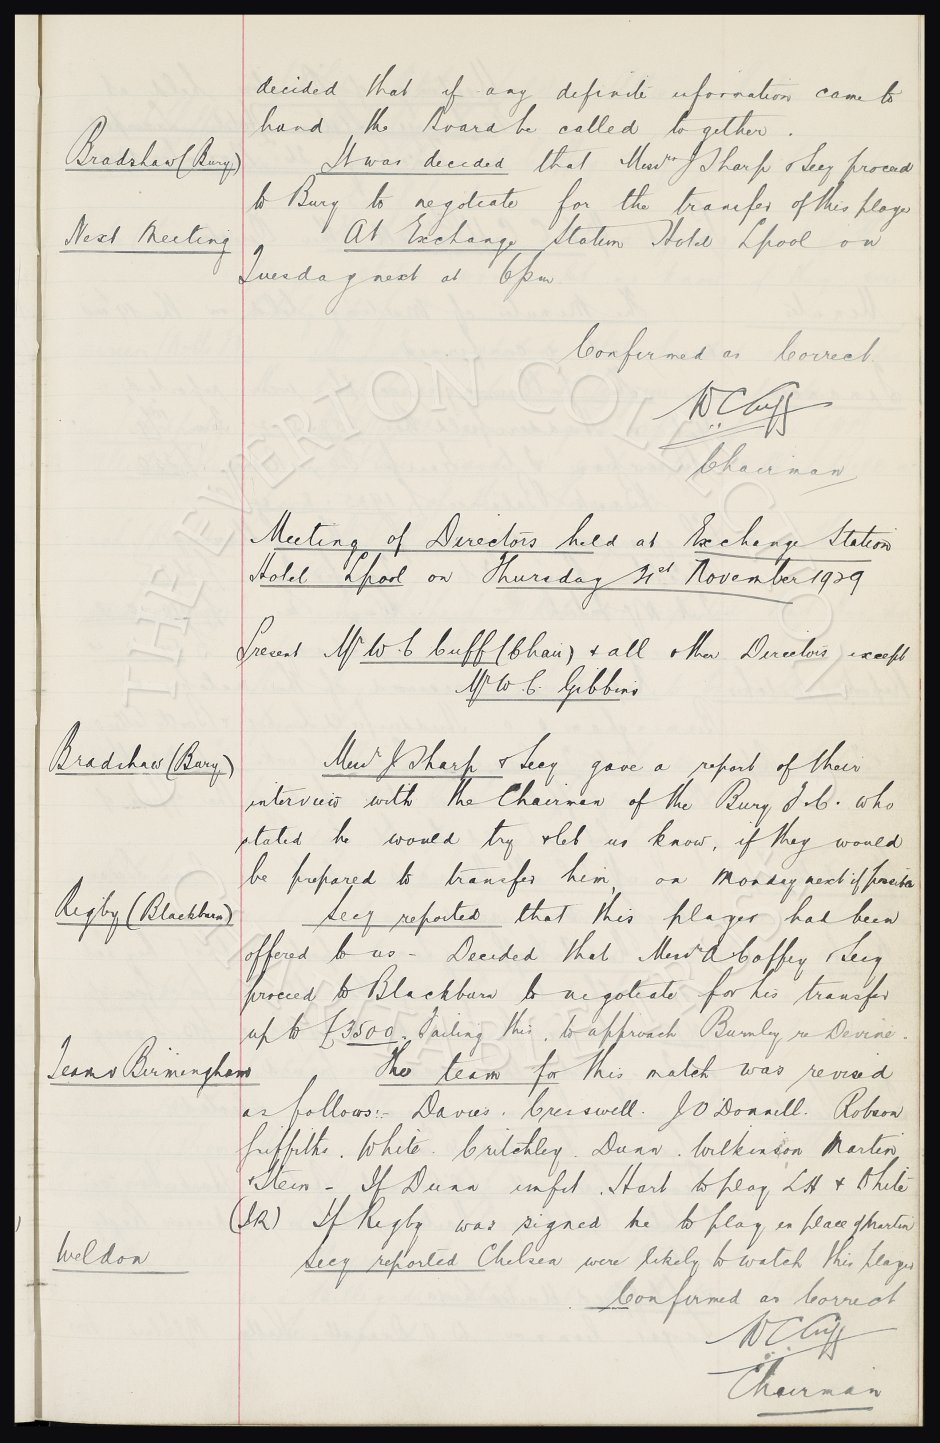 decided that if any definite information came to
hand the Board be called together.
Bradshaw (Bury) It was decided that Messrs J Sharp & Secy proceed
to Bury to negotiate for the transfer of this player
Next Meeting At Exchange Station Hotel Lpool on
Tuesday next at 6pm
Confirmed as Correct
WC Cuff
Chairman
Meeting of Directors held at Exchange Station
Hotel Lpool on Thursday 21st November 1929
Present Mr W. C Cuff (Chair) & all other Directors except
Mr W. C. Gibbins
Bradshaw (Bury) Messrs J Sharp & Secy gave a report of their
interview with the Chairman of the Bury F.C. who
stated he would try & let us know, if they would
be prepared to transfer him, on Monday next if possible
Rigby (Blackburn) Secy reported that this player had been
offered to us - Decided that Messrs A Coffey & Secy
proceed to Blackburn to negotiate for his transfer
up to £3500. Failing this, to approach Burnley re Devine.
Team v Birmingham The team for this match was revised
as follows:- Davies. Cresswell. J O'Donnell. Robson
Griffiths. White. Critchley. Dunn. Wilkinson Martin
& Stein - If Dunn unfit. Hart to play LH & White
(IR) If Rigby was signed he to play in place of Martin
Weldon Secy reported Chelsea were likely to watch this player
Confirmed as Correct
WC Cuff
Chairman
THE EVERTON COLLECTION